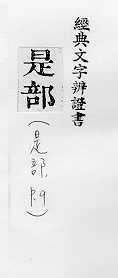 經典文字辨證書
是部
(是部 P.9)